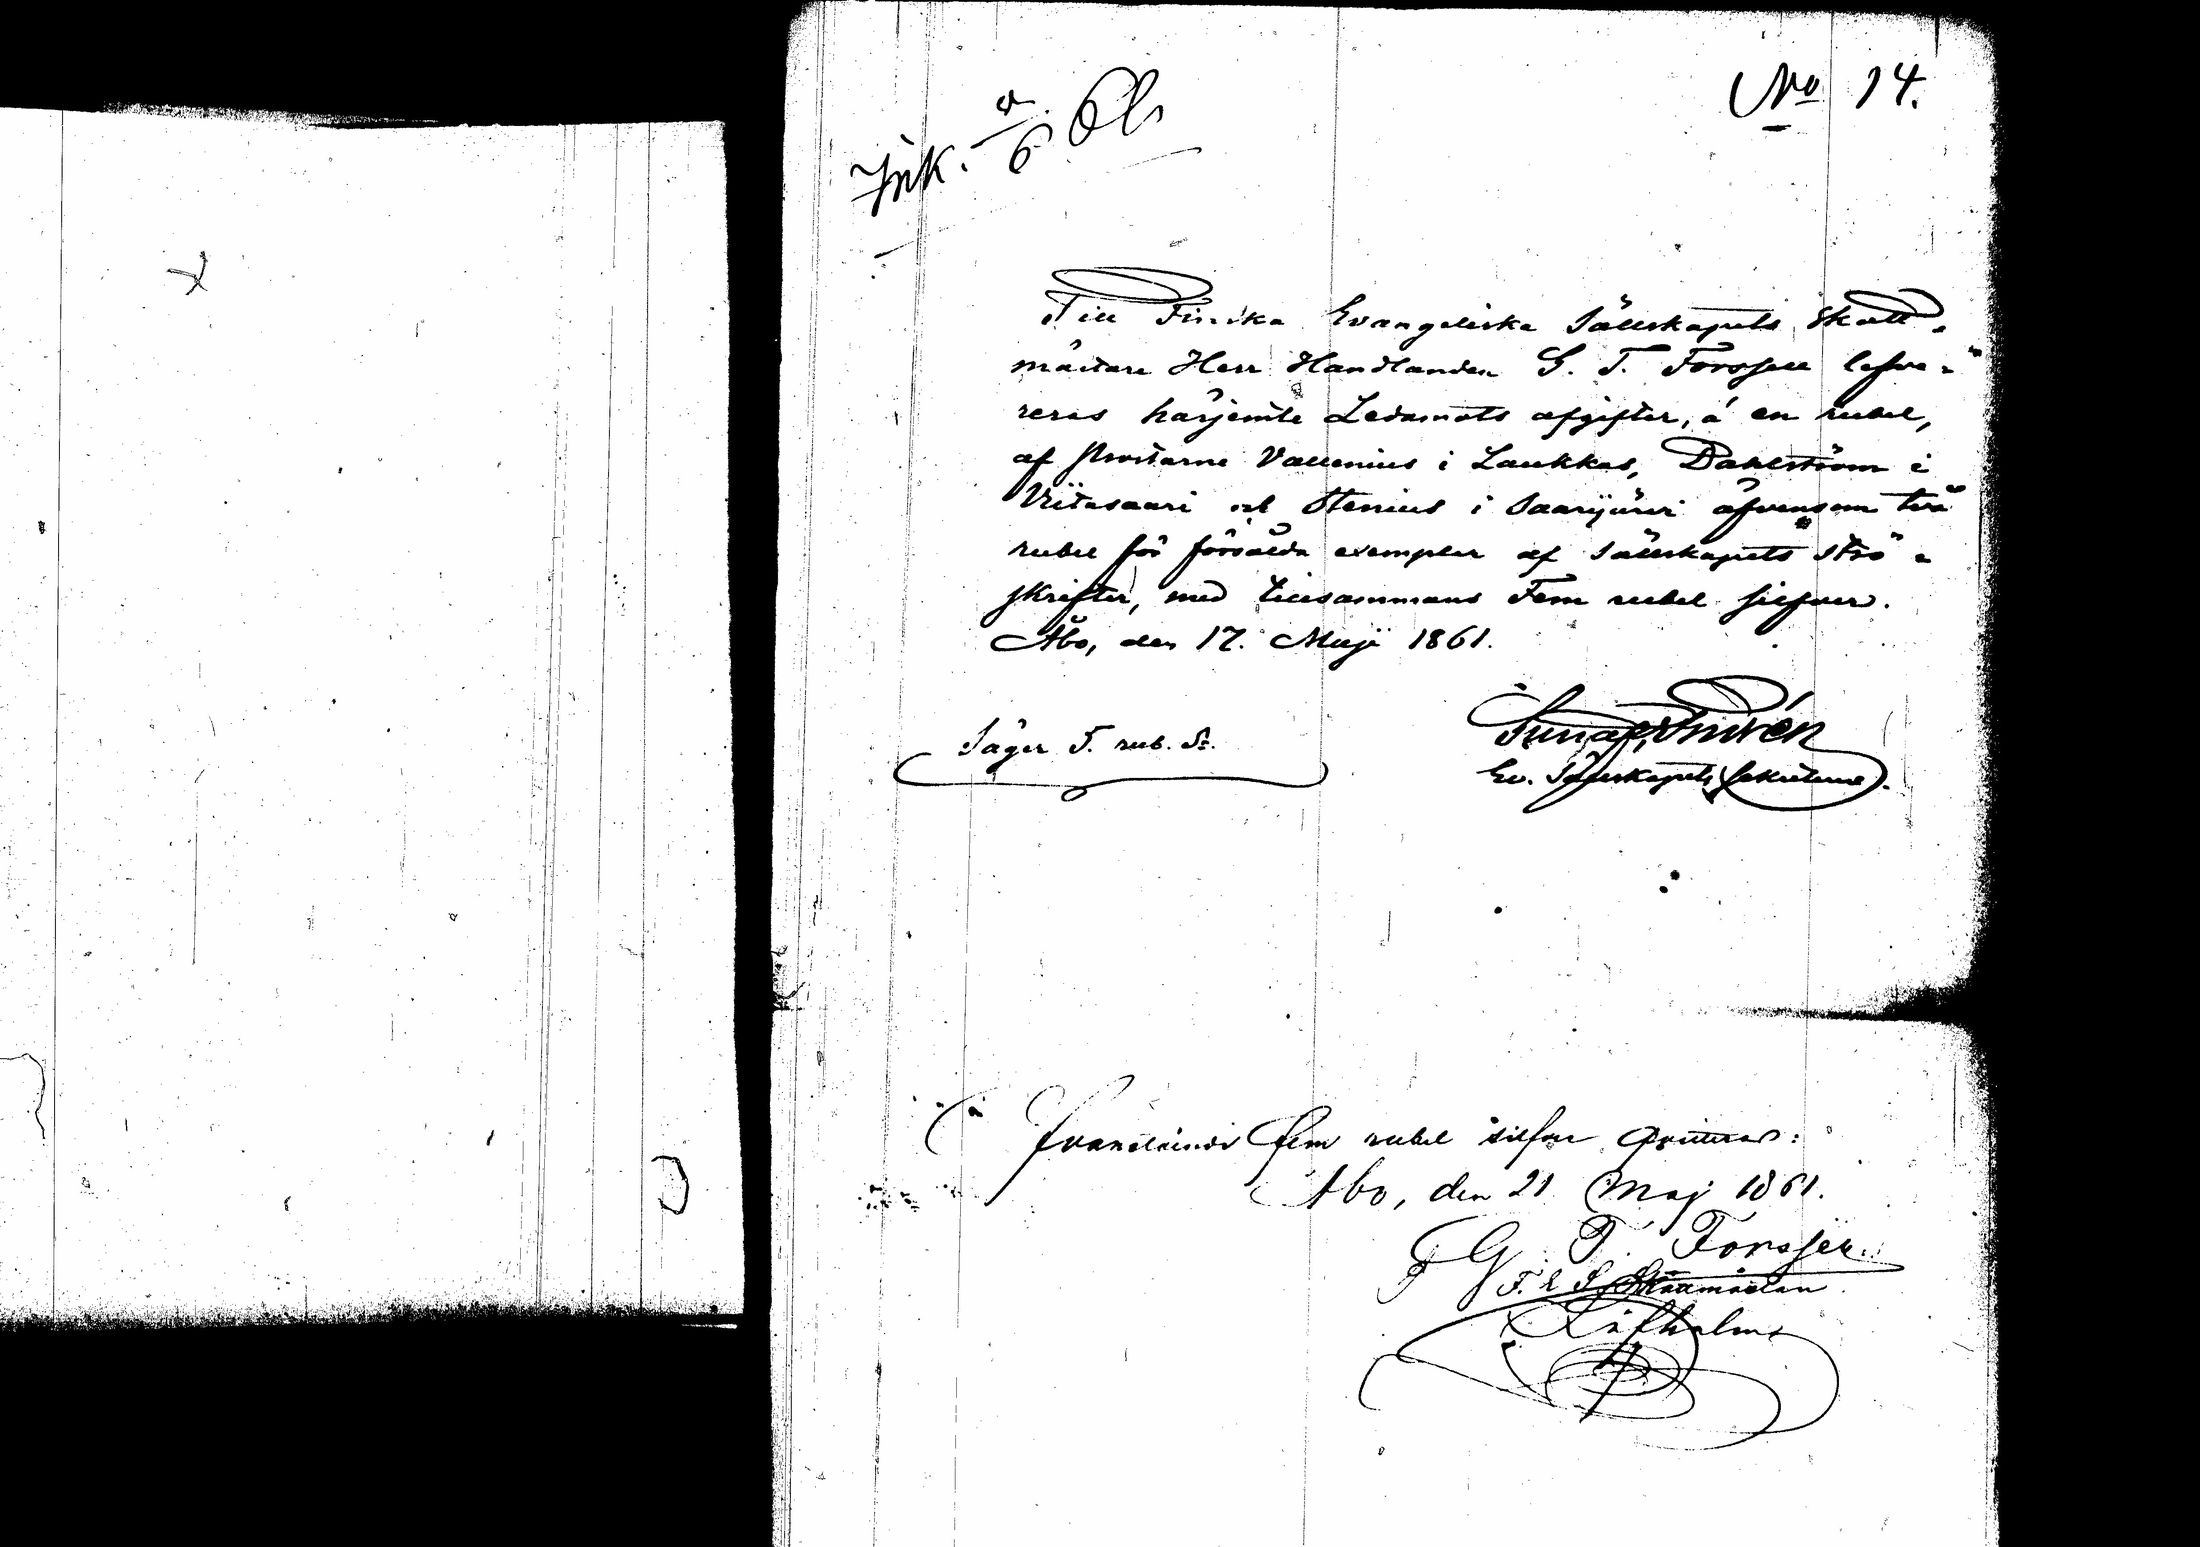 No 14.
Ink. 6
Till Finska Evangeliska Sällskapets Skatt-
mästare Herr Handlanden G. T. Forssell lefve-
reras härjemte Ledamots afgifter, á en rubel,
af Prostarne Vallenius i Laukkas, Dahlström i
Viitasaari och Stenius i Saarijärvi äfvensom två
rubel för försålda exemplar af Sällskapets Strö-
skrifter, med tillsammans Fem rubel silfver.
Åbo, den 17. Maji 1861.
Säger 5. rub. Sr.
Ev. Sällskapets Sekreterare.
Fem rubel silfver qvitteras:
Åbo, den 21 Maj 1861.
G. T. Forssell
F. E. S. Skattmästare